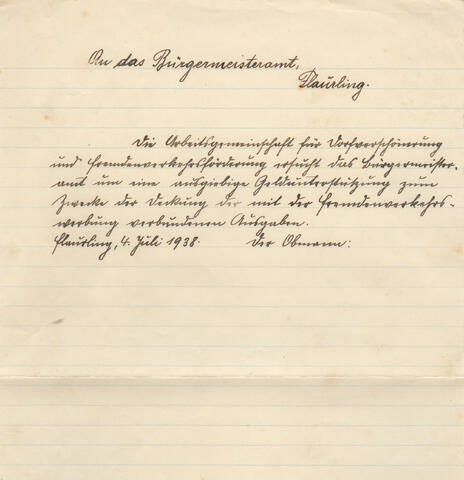 An das Bürgermeisteramt,
Flaurling.
Die Arbeitsgemeinschaft für Dorfverschönerung
und Fremdenverkehrsförderung ersucht das Bürgermeister-
amt um eine ausgiebige Geldunterstützung zum
Zwecke der Deckung der mit der Fremdenverkehrs-
werbung verbundenen Ausgaben.
Flaurling, 4. Juli 1938. Der Obmann: